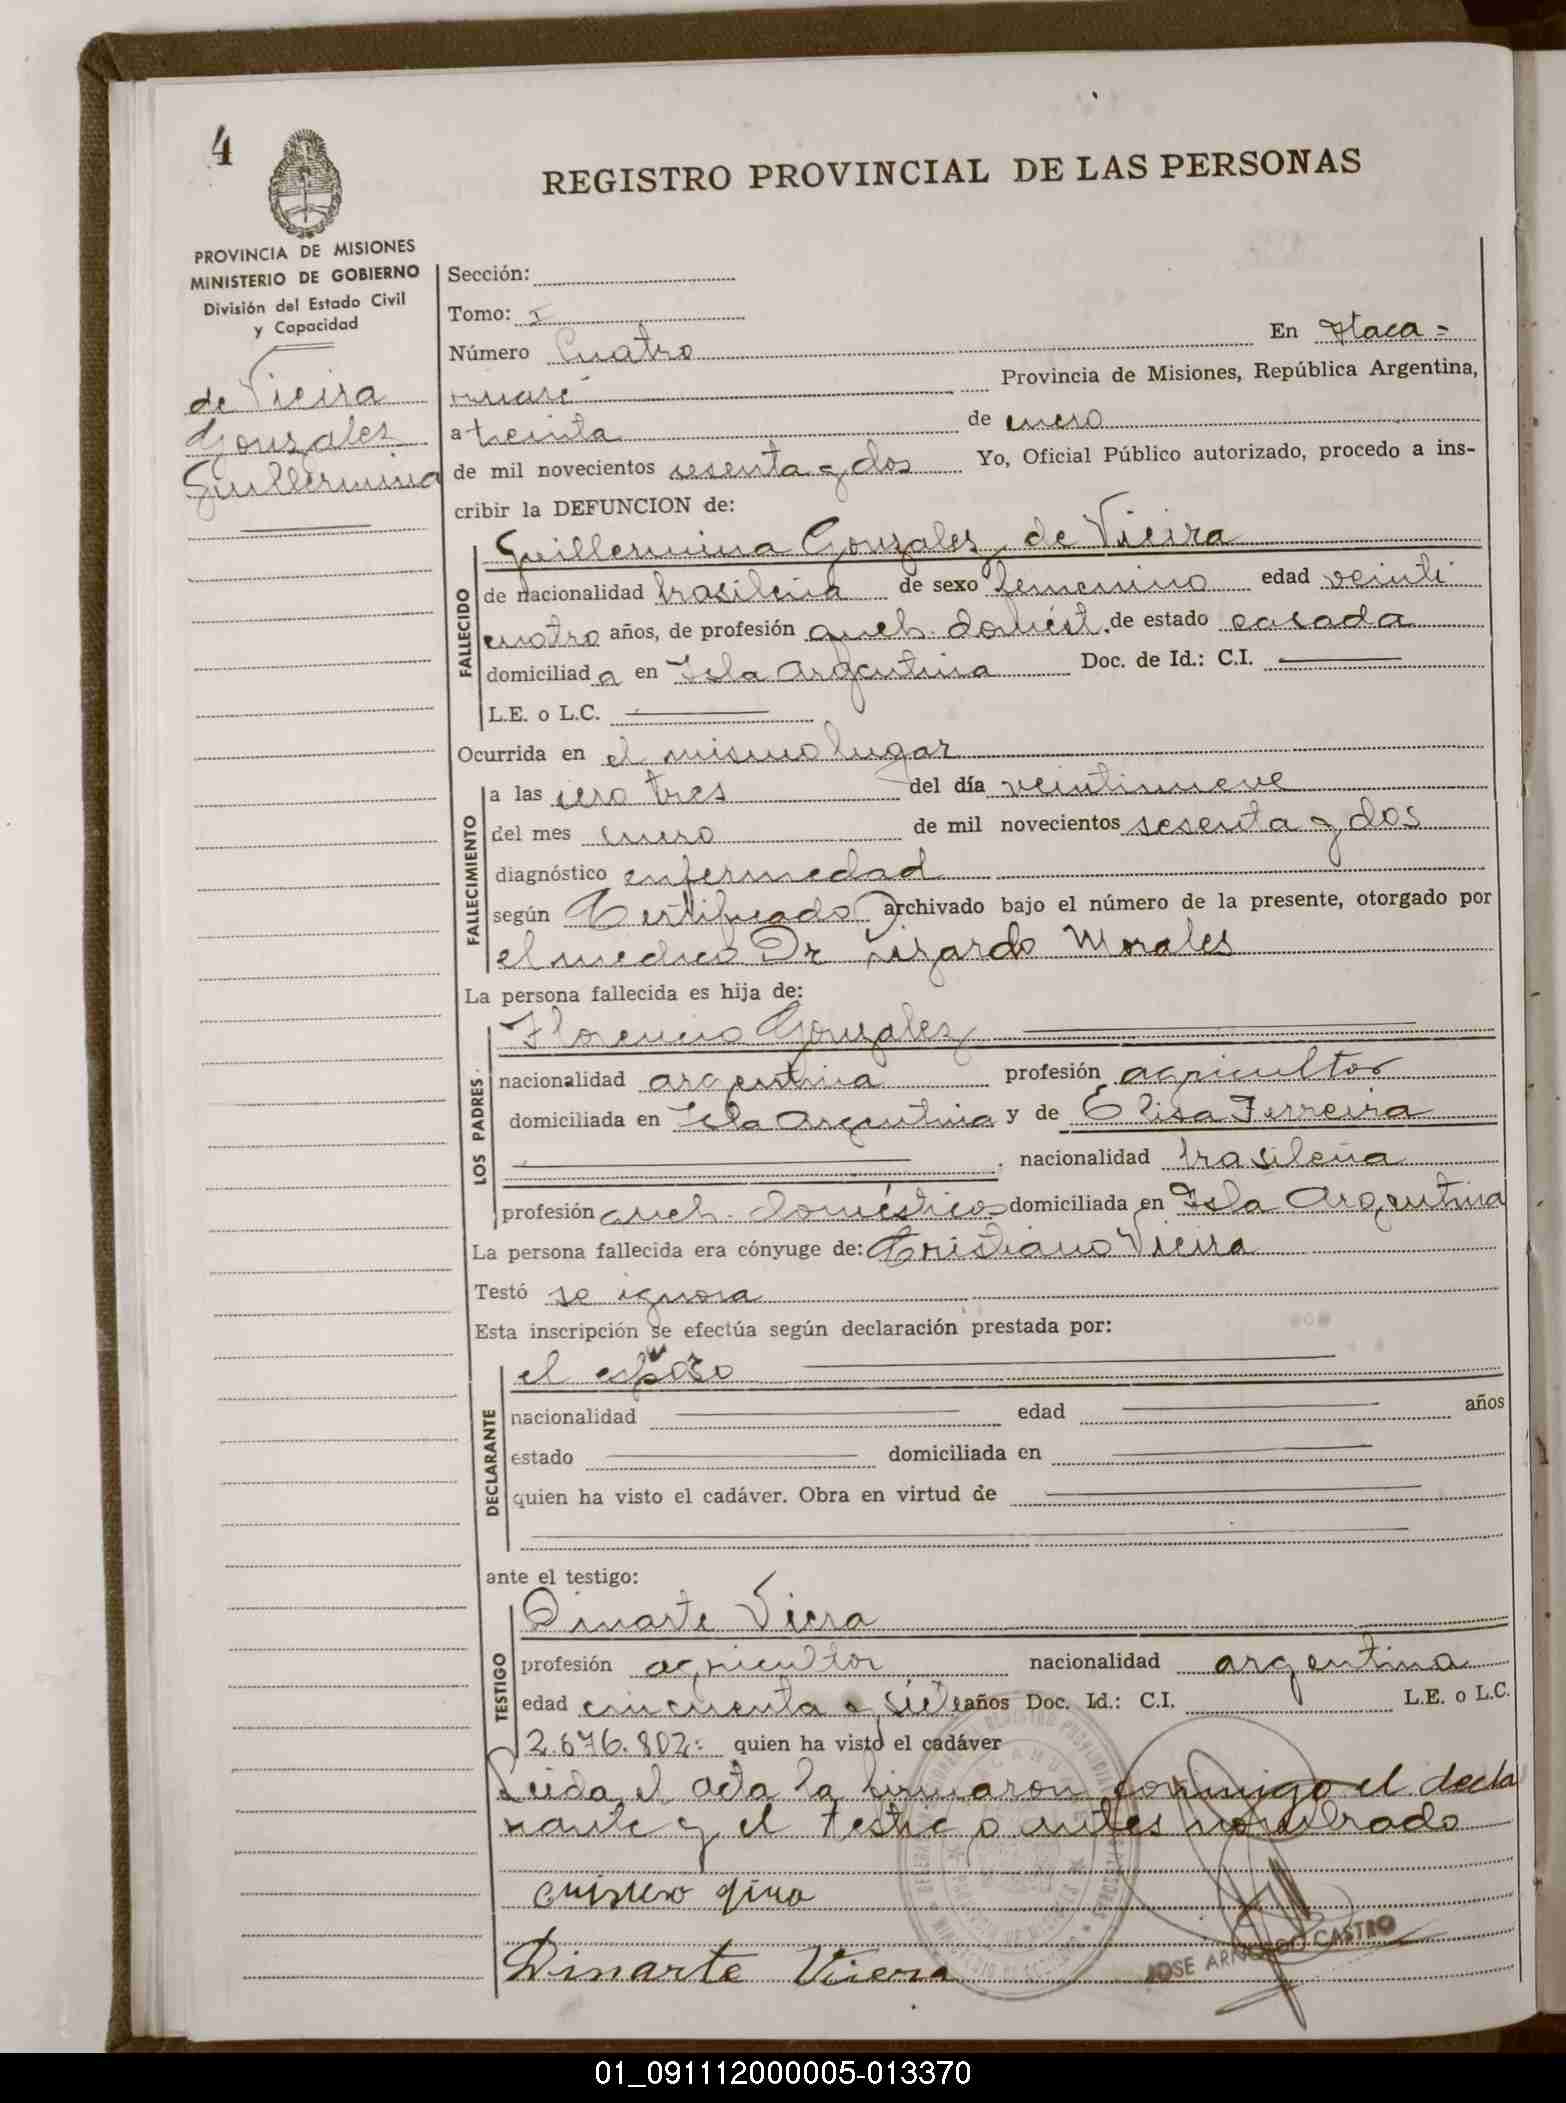 4
REGISTRO PROVINCIAL DE LAS PERSONAS
PROVINCIA DE MISIONES
MINISTERIO DE GOBIERNO
División del Estado Civil
y Capacidad
de Vieira
Gonzalez
Guillermina
Sección:
Tomo: I
Número Cuatro En Itaca=
ruaré Provincia de Misiones, República Argentina,
a treinta de enero
de mil novecientos sesenta y dos Yo, Oficial Público autorizado, procedo a ins-
cribir la DEFUNCION de:
FALLECIDO
Guillermina Gonzalez de Vieira
de nacionalidad brasileña de sexo femenino edad veinti
cuatro años, de profesión queh. domést. de estado casada
domiciliad a en Isla Argentina Doc. de Id.: C.I.
L.E. o L.C.
Ocurrida en el mismo lugar
FALLECIMIENTO
a las cero tres del día veintinueve
del mes enero de mil novecientos sesenta y dos
diagnóstico enfermedad
según Certificado archivado bajo el número de la presente, otorgado por
el medico Dr Lizardo Morales
La persona fallecida es hija de:
LOS PADRES
Florencio Gonzalez
nacionalidad argentina profesión agricultor
domiciliada en Isla Argentina y de Elisa Ferreira
nacionalidad brasileña
profesión queh. domésticos domiciliada en Isla Argentina
La persona fallecida era cónyuge de: Cristiano Vieira
Testó se ignora
Esta inscripción se efectúa según declaración prestada por:
DECLARANTE
el esposo
nacionalidad edad años
estado domiciliada en
quien ha visto el cadáver. Obra en virtud de
ante el testigo:
TESTIGO
Dinarte Viera
profesión agricultor nacionalidad argentina
edad cincuenta y siete años Doc. Id.: C.I. L.E. o L.C.
2.676.802= quien ha visto el cadáver
Leida el acta la firmaron conmigo el decla
rante y el testigo antes nombrado
Dinarte Vierra
JOSE CASTRO
01_091112000005-013370